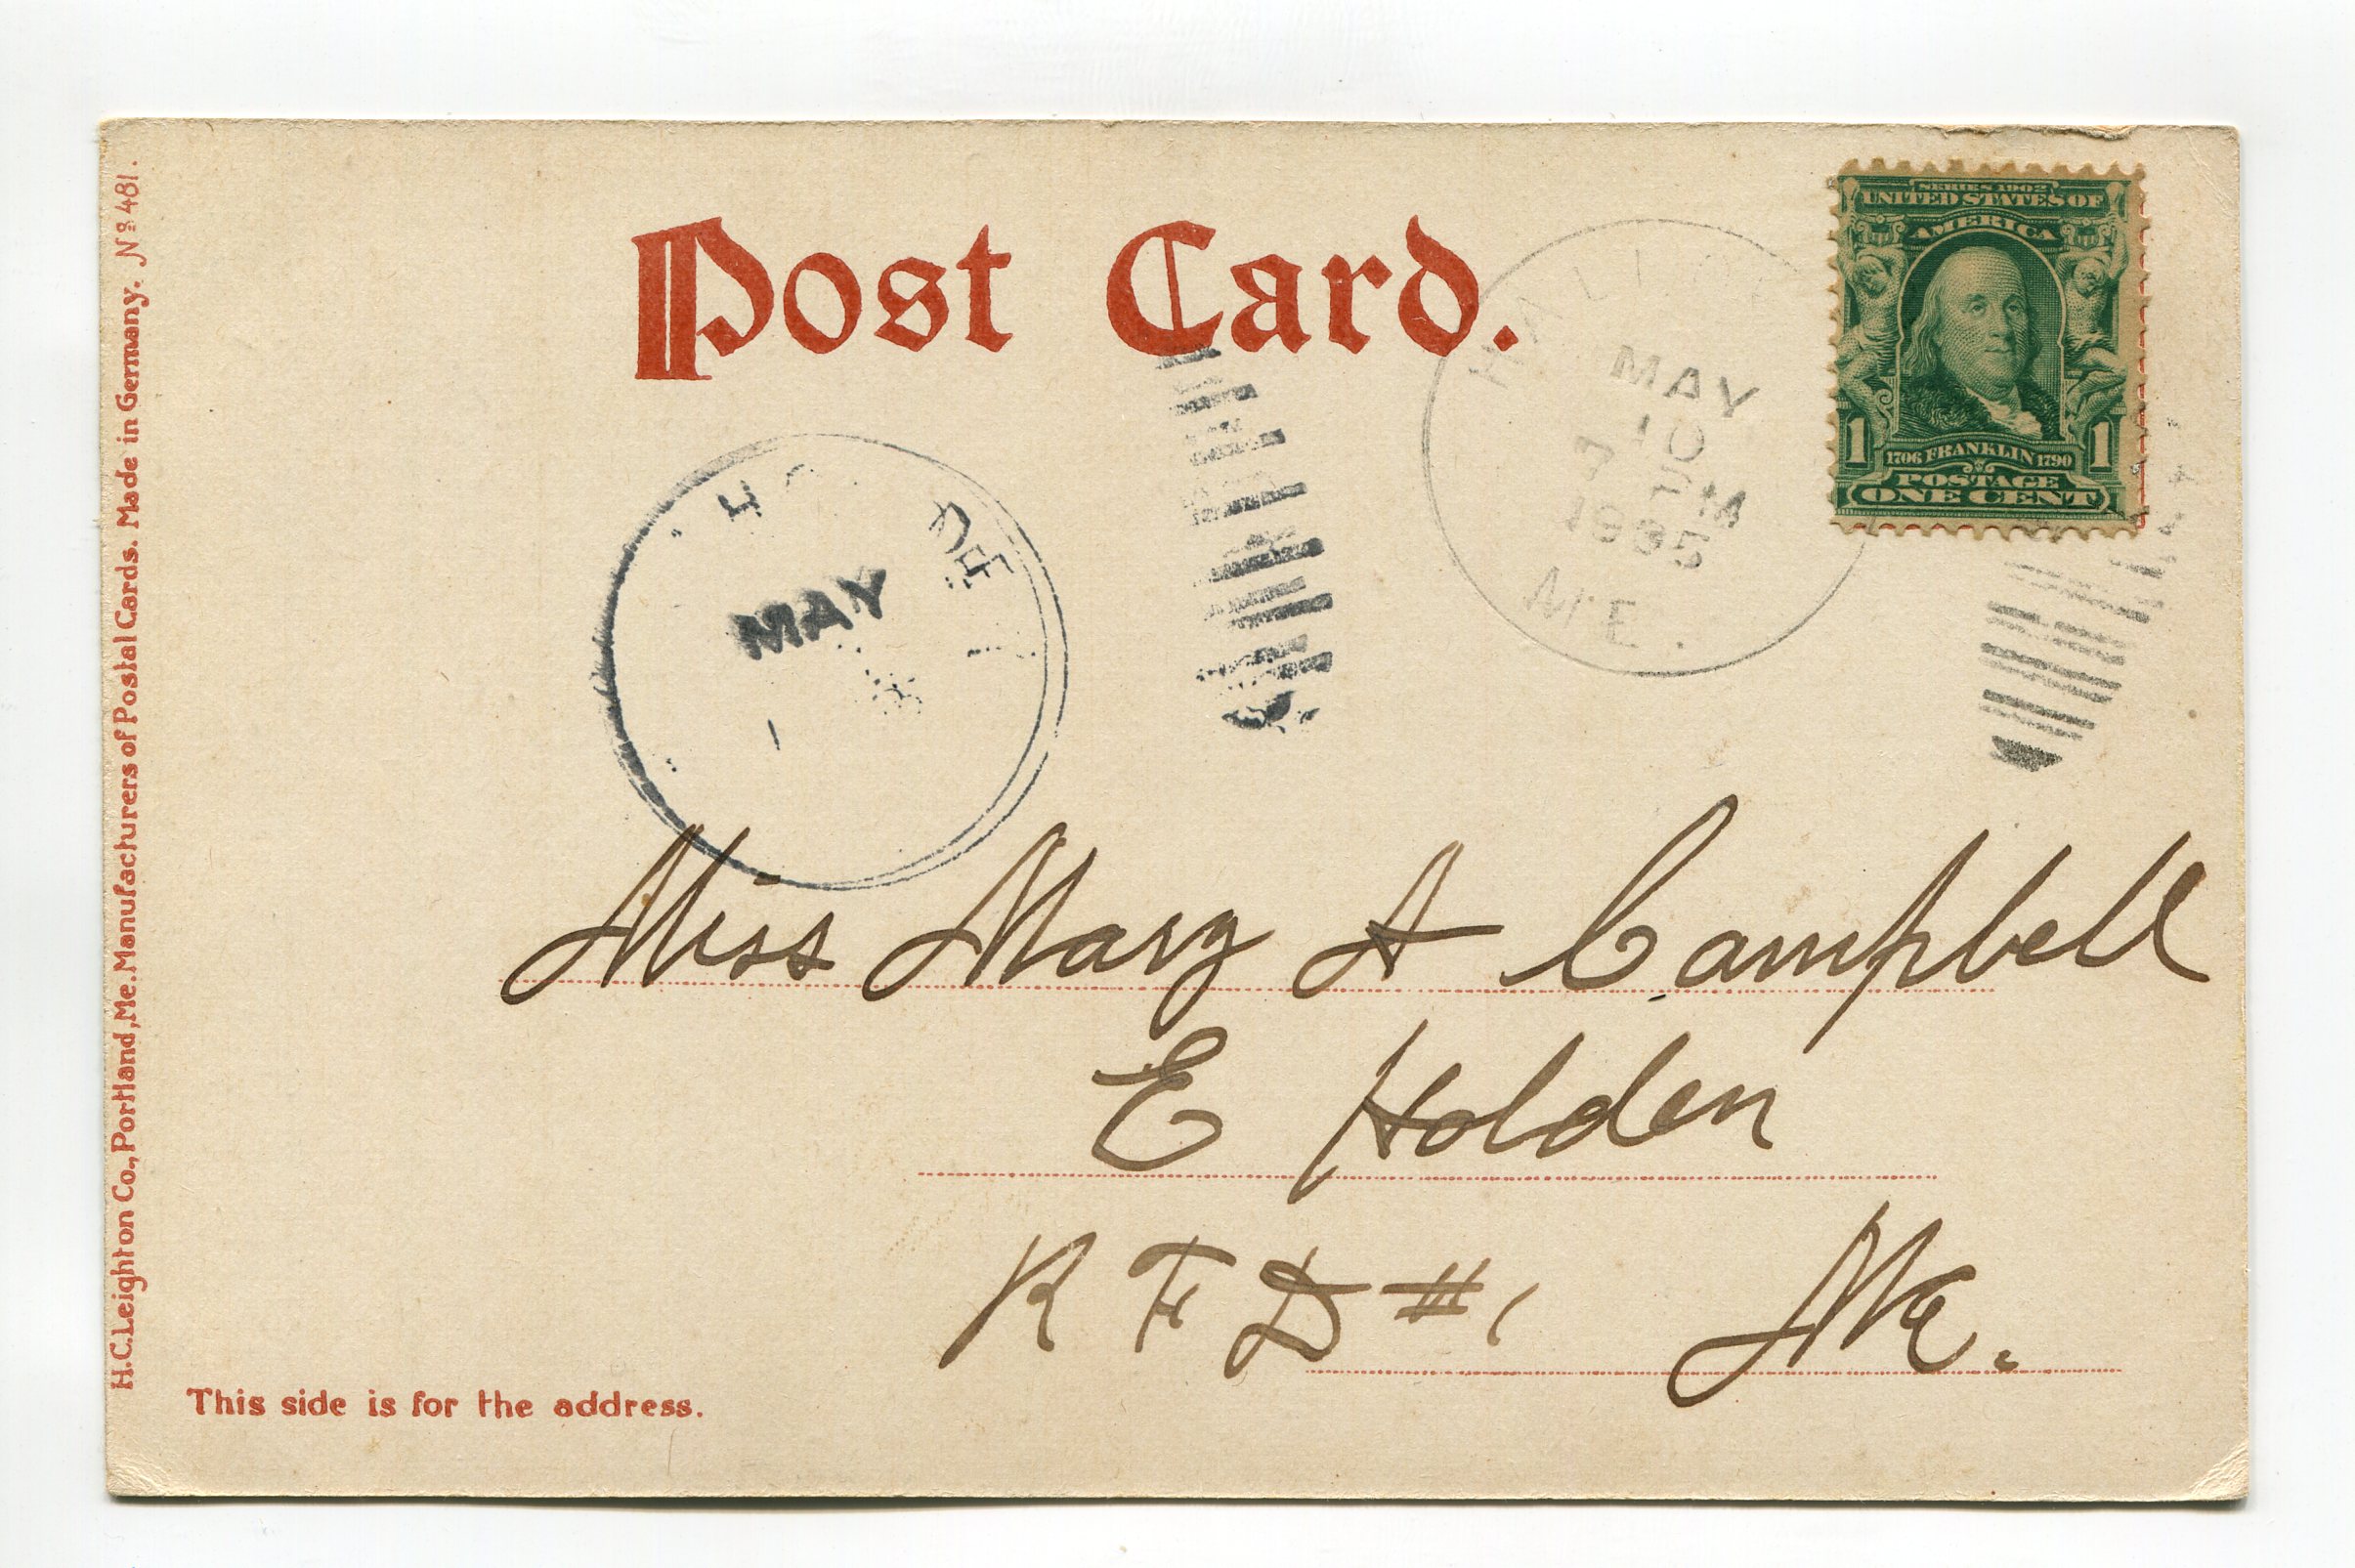 Post Card.
SERIES 1902
UNITED STATES OF
AMERICA
1 1706 FRANKLIN 1790 1
POSTAGE
ONE CENT
MAY
10
7 PM
ME.
MAY
Miss Mary A Campbell
E Holden
R F D #1 Me.
This side is for the address.
H.C.Leighton Co., Portland, Me. Manufacturers of Postal Cards. Made in Germany. No 481.